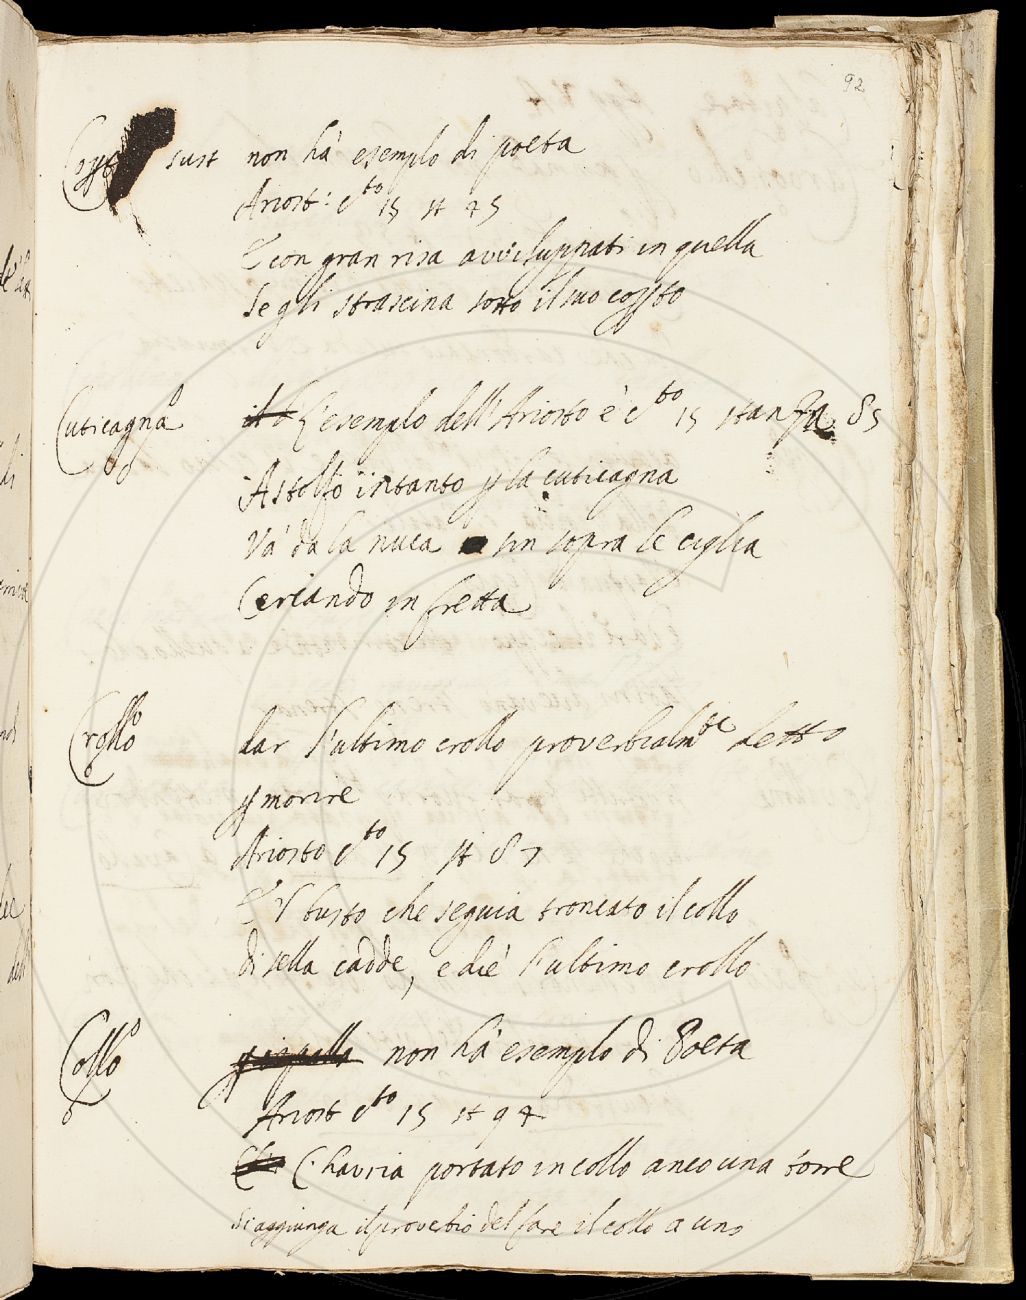 92
sust non ha' esempio di poeta
Ariost: C.to 15 st 45
E con gran risa aviluppati in quella
Se gli strascina sotto il suo
Cuticagna L'esempio dell'Ariosto è C.to 15 stanza 85
Astolfo intanto p la cuticagna
Va' da la nuca fin sopra le ciglia
Cercando in fretta
Crollo dar l'ultimo crollo proverbialm.te detto
p morire
Ariosto C.to 15 st 87
E 'l busto che seguia troncato il collo
Di sella cadde, e diè l'ultimo crollo
Collo non ha' esempio di Poeta
Ariost C.to 15 st 94
C'havria portato in collo anco una torre
Si aggiunga il proverbio del fare il collo a uno